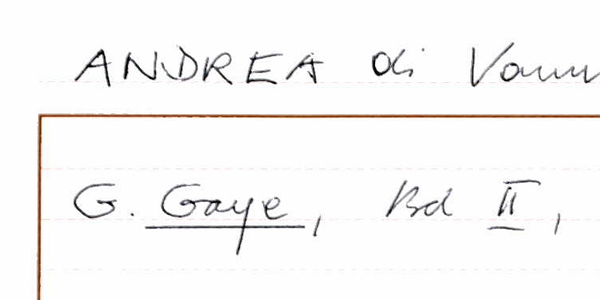 ANDREA di
G. Gaye, Bd II,